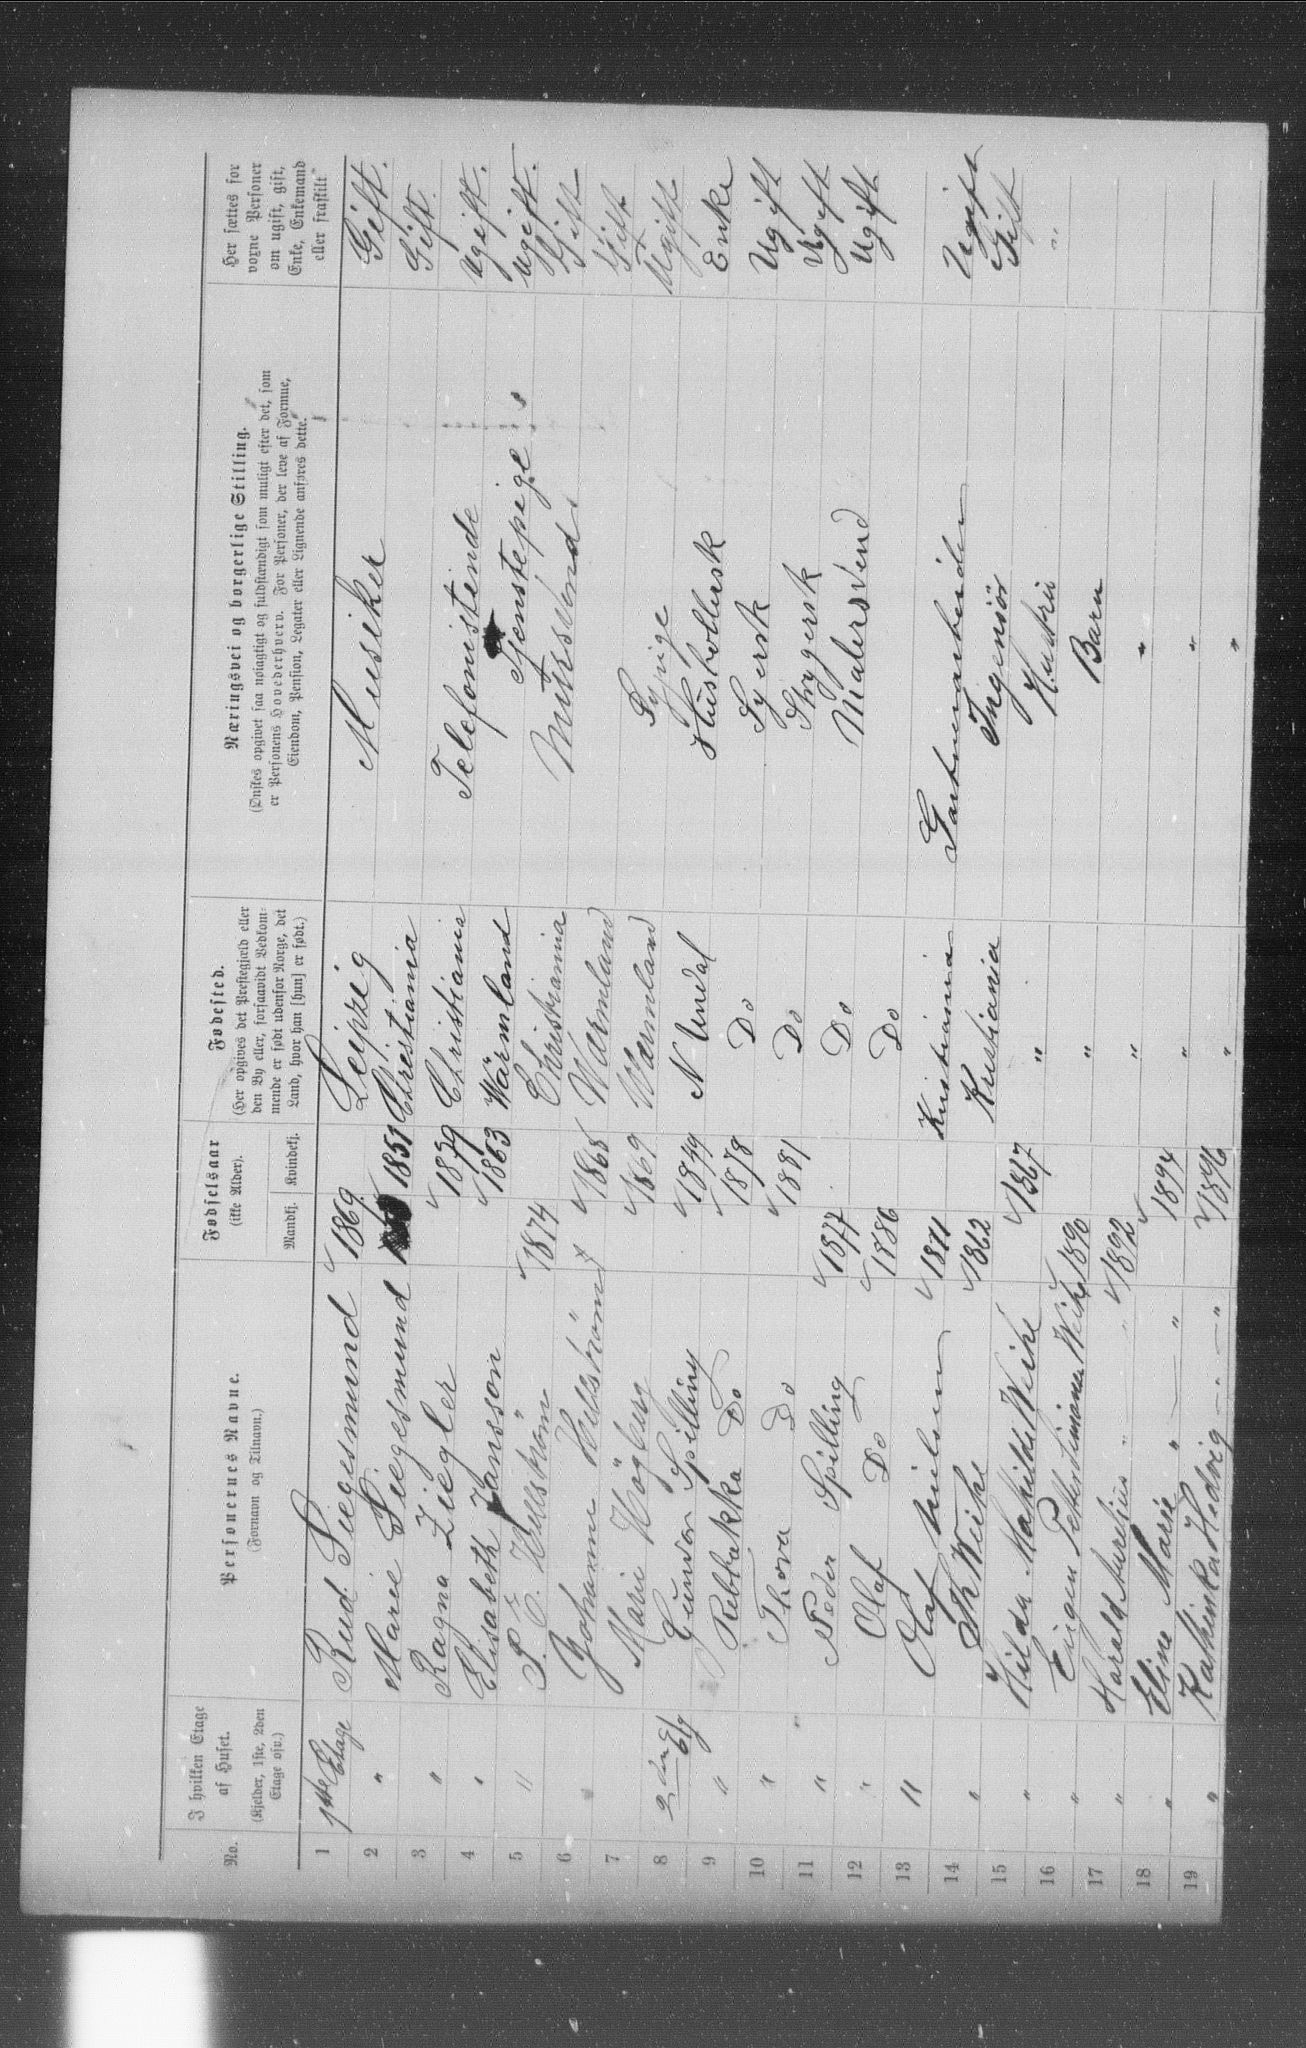 No.
I hvilken Etage af Huset.
(Kjelder, 1ste, 2den Etage osv.)
Personernes Navne.
(Fornavn og Tilnavn.)
Fødselsaar
(ikke Alder).
Mandkj. Kvindekj.
Fødested.
(Her opgives det Præstegjeld eller
den By eller, forsaavidt Vedkom-
mende er født udenfor Norge, det
Land, hvor han [hun] er født.)
Næringsvei og borgerlige Stilling.
(Ønskes opgivet saa nøiagtigt og fuldstændigt som muligt efter det, som
er Personens Hovederhverv. For Personer, der leve af Formue,
Eiendom, Pension, Legater eller Lignende anføres dette.
Her sættes for
voxne Personer
om ugift, gift,
Enke, Enkemand
eller fraskilt
1 1ste Etage Rud. Siegesmund 1869 Leipzig Musiker Gift.
2 " Marie Siegesmund 1851 Christiania Gift.
3 " Ragna Ziegler 1879 Christiania Telefonistinde Ugift.
4 " Elisabeth Jansson 1863 Wärmland Tjenstepige Ugift.
5 " P. E. Hellström 1874 Christiania Murssvend Gift
6 Johanne Hellström 1868 Wermland Gift
7 Marie Högberg 1869 Wærmland Sypige Ugift
8 2den Etg Gunvor Spilling 1849 N Undal Husholdersk Enke
9 " Rebbekka Do 1878 Do Syersk Ugift
10 " Thora Do 1881 Do Strygersk Ugift
11 " Peder Spilling 1877 Do Malersvend Ugift
12 " Olaf Do 1886 Do
13 " Olaf Nielsen 1871 Kristiania Gartnerarbeider Ugift
14 " Th Weihe 1862 Kristiania Ingeniør Gift
15 " Hilda Mathilde Weihe 1867 " Hustru "
16 " Eugen Petter Simonsen Weihe 1890 " Barn
17 " Harald Aurelius " 1892 " "
18 " Eline Marie " " 1894 " "
19 " Kathinka Hedvig " " 1896 " "